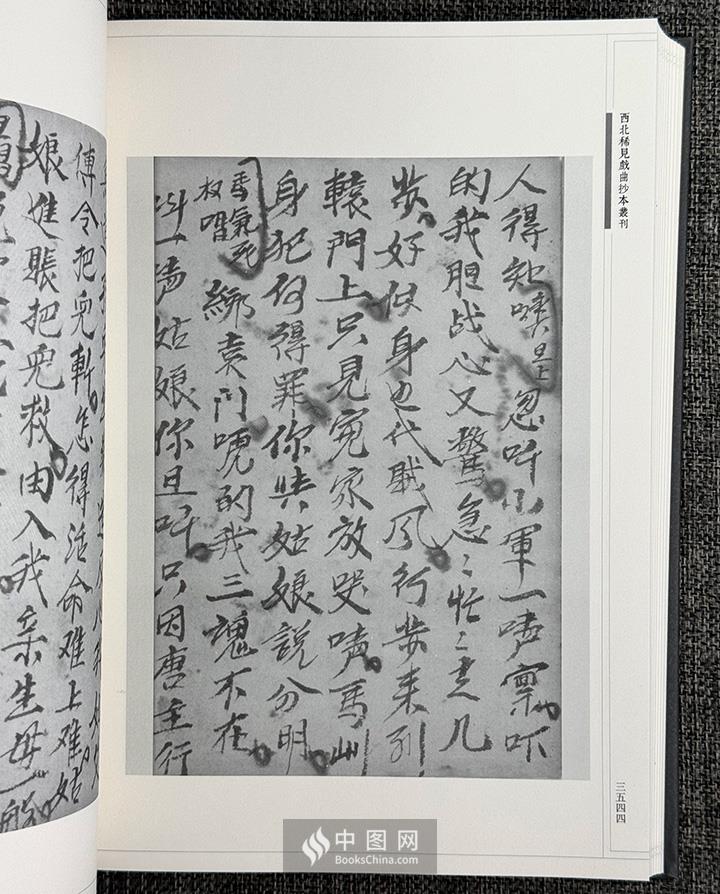 西北稀見戲曲抄本叢刊
人得知旦上忽听小軍一声禀吓
的我胆战心又驚急〻忙〻走几
步好似身边代戝风行步来到
轅門上只見寃家放哭声馬
身犯何得罪你與姑娘說分明
氣死板唱綁袁门唬的我三魂不在
叫一声姑娘你且听只因唐主行
傳令把兒斬怎得活命难上难姑
娘進賬把兒救由入我亲生母一般
三五四四
中图网
BooksChina.com